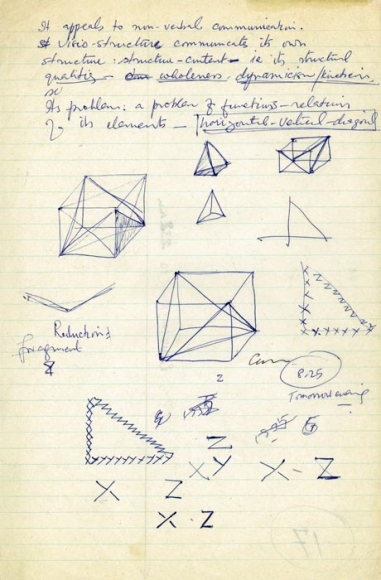 It appeals to non-verbal communication.
A Visio-structure communicates its own
structure: structure-content - ie its structural
qualities - wholeness, dynamicism/kineticism,
Its problem: a problem of functions-relations
of its elements - horizontal-vertical-diagonal
Reductionist
fragment
Z
8.25
Tomorrow evening
Z
X Y X - Z
X Z
X . Z
17